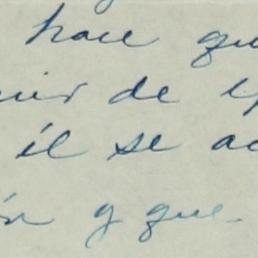 hace qu
de
él se ac
ón y que